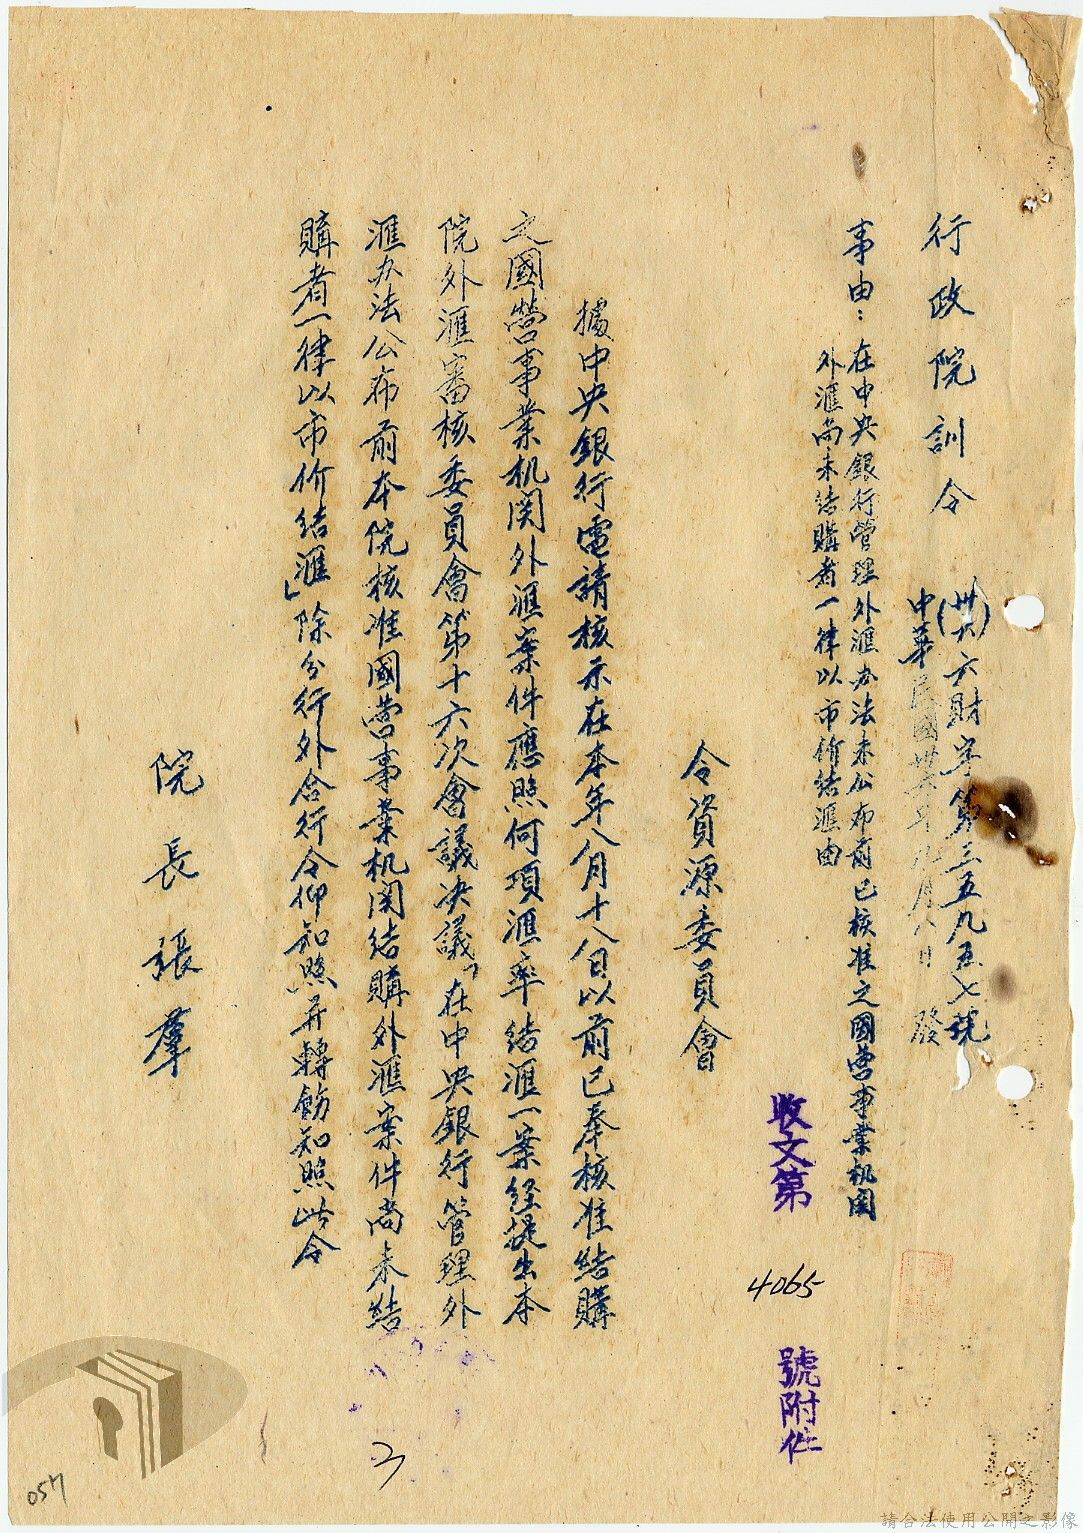 行政院訓令
(卅六)六財字第三五九五七號
中華民國卅六年九月八日 發
事由：在中央銀行管理外滙办法未公布前已核准之國营事業机関
外滙尚未结購者一律以市價结滙由
收文第 4065 號附件
令資源委員會
據中央銀行電請核示在本年八月十八日以前已奉核准结購
之國營事業机関外滙案件應照何項滙率结滙一案经提出本
院外滙審核委員會第十六次會議决議「在中央銀行管理外
滙办法公布前本院核准國营事業机関结購外滙案件尚未结
購者一律以市价结滙」除分行外合行令仰知照并轉飭知照此令
院長張羣
057
請合法使用公開之影像